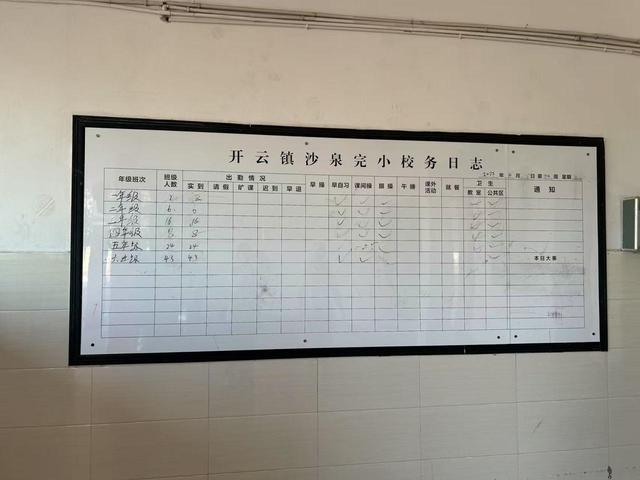 开云镇沙泉完小校务日志
年级班次 班级人数 出勤情况 早操 早自习 课间操 眼操 午睡 课外活动 就餐 卫生 通知
实到 请假 旷课 迟到 早退 教室 公共区
一年级 2 2
二年级 6
三年级 16 16
四年级
五年级 24 24
六年级 43 43
本日大事